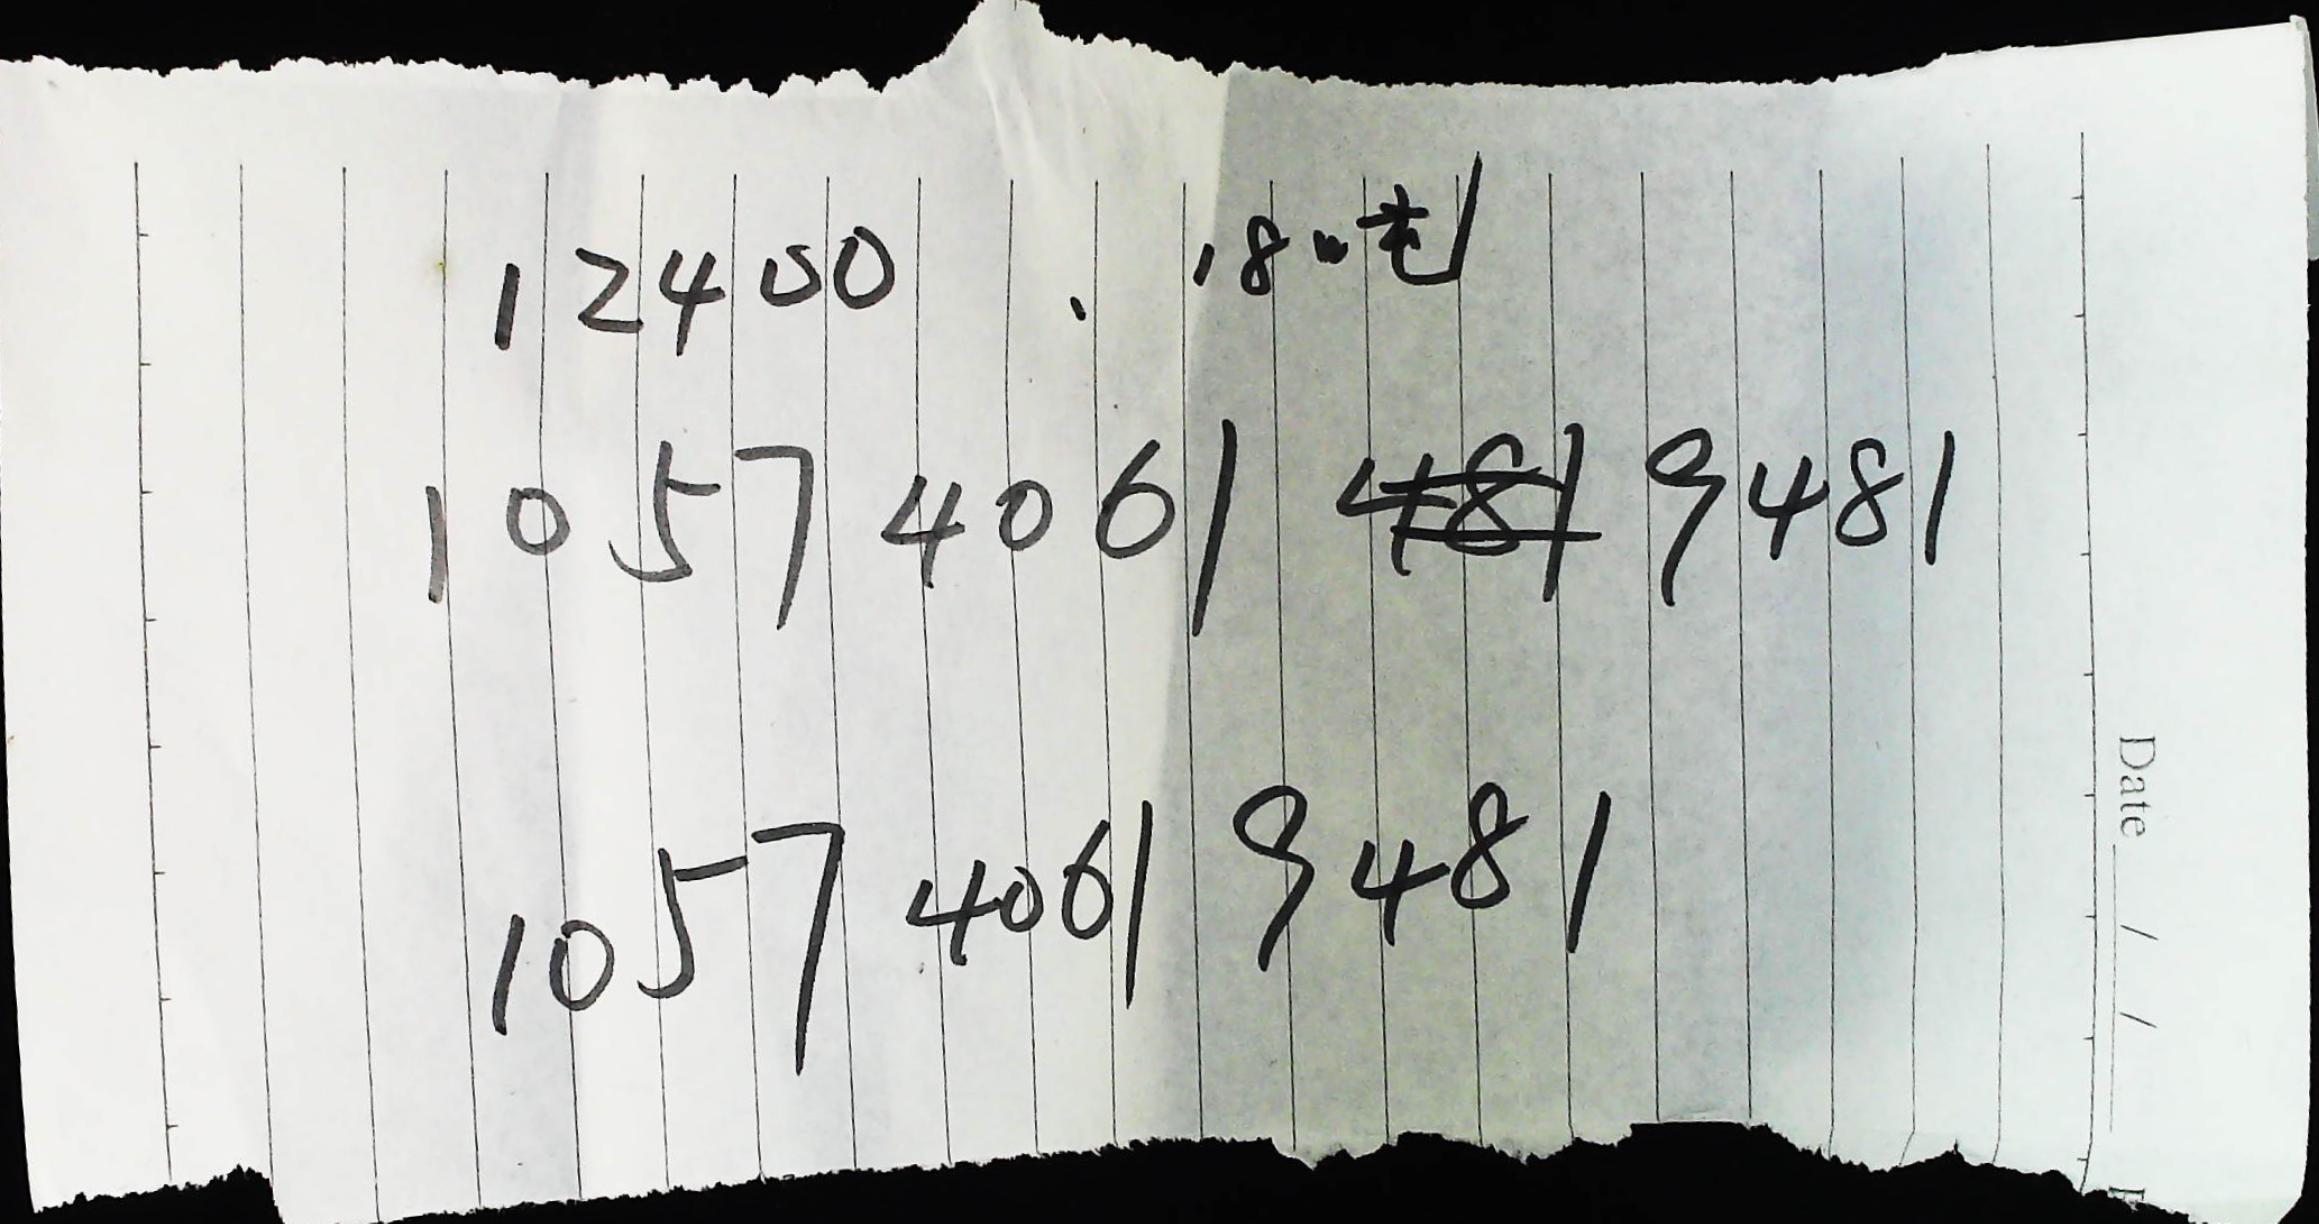 12400
1057 4061 481 9481
1057 4061 9481
Date / /